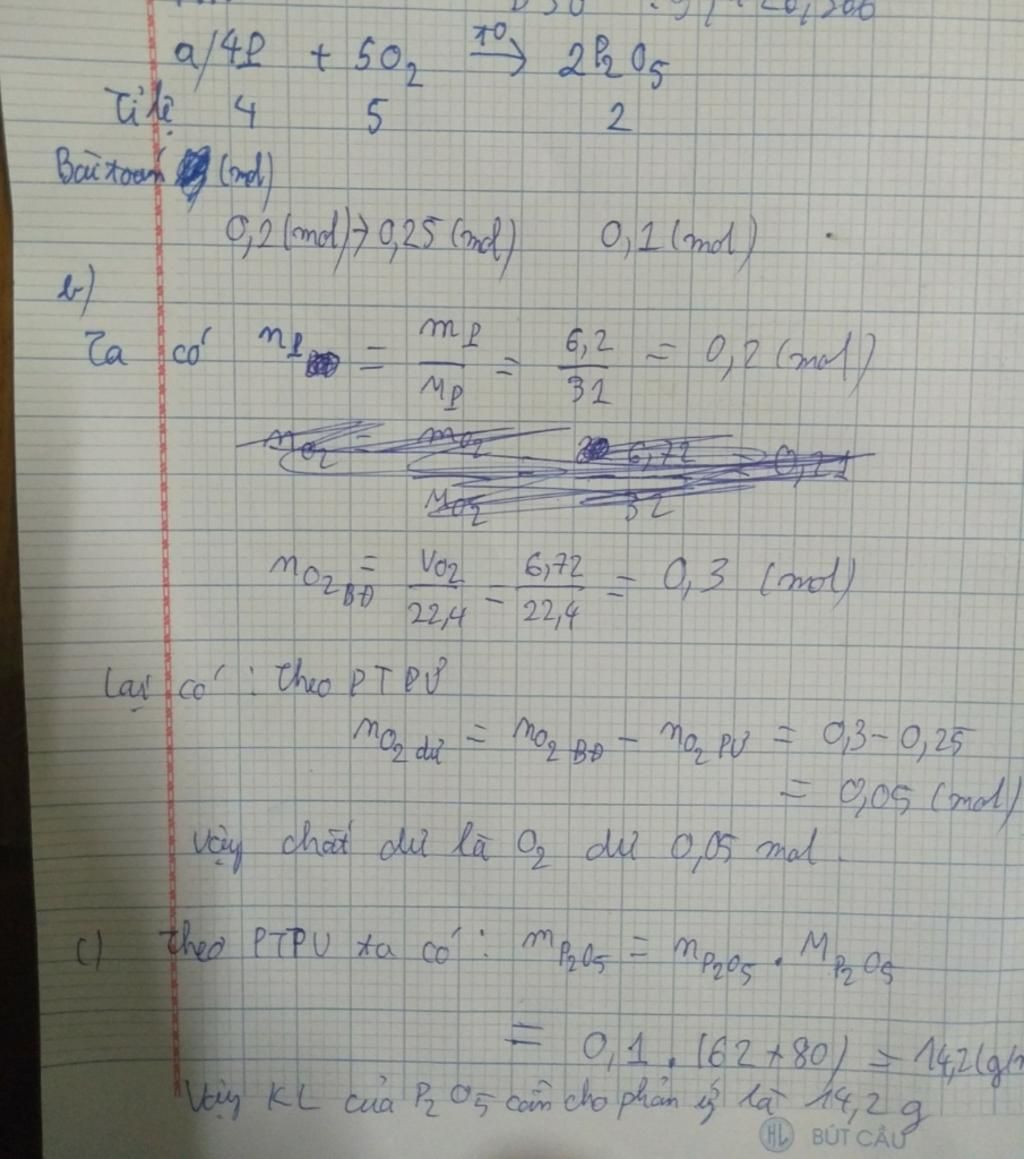 a/ 4P + 5O2 t0→ 2P2O5
Tỉ lệ 4 5 2
Bài toán (mol)
0,2 (mol) → 0,25 (mol) 0,1 (mol)
b)
Ta có nP = mP / MP = 6,2 / 31 = 0,2 (mol)
nO2 BĐ = VO2 / 22,4 = 6,72 / 22,4 = 0,3 (mol)
Lại có : Theo PTPƯ
nO2 dư = nO2 BĐ - nO2 PƯ = 0,3 - 0,25
= 0,05 (mol)
Vậy chất dư là O2 dư 0,05 mol.
c) Theo PTPƯ ta có : mP2O5 = nP2O5 . MP2O5
= 0,1 . (62 + 80) = 14,2 (g
Vậy KL của P2O5 cần cho phản ứ là 14,2 g
HL BÚT CÂU